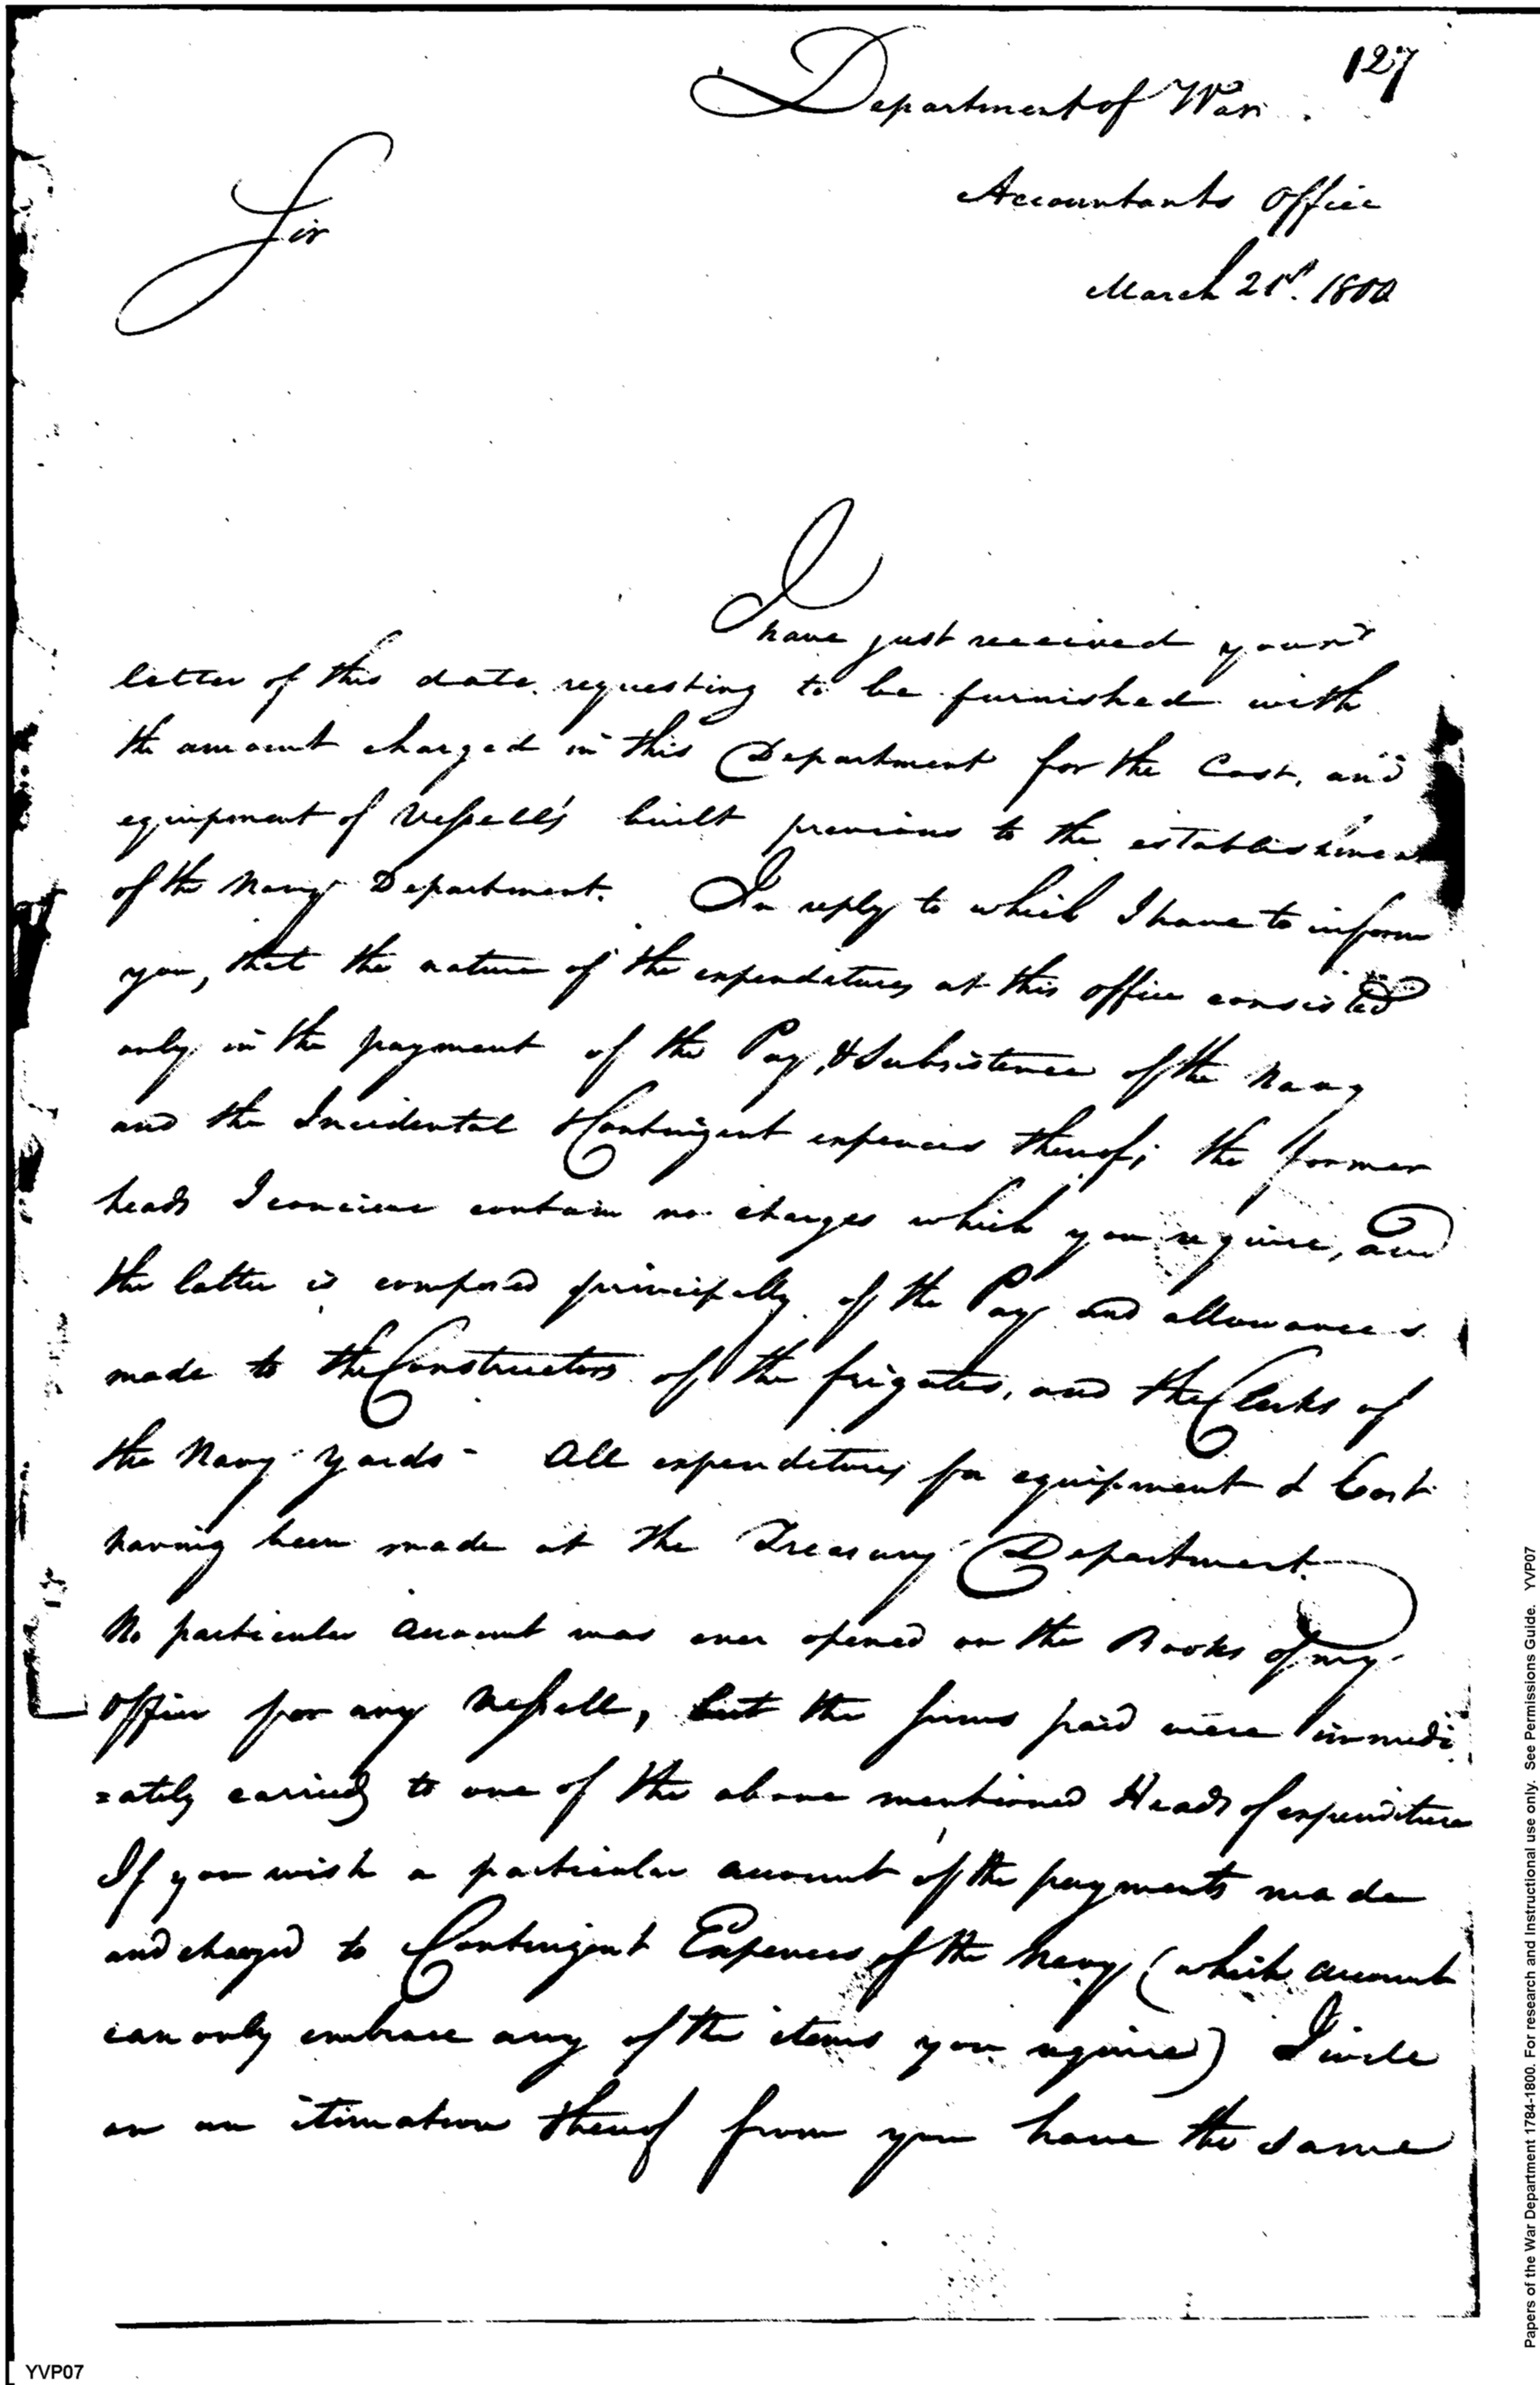 127
Department of War.
Accountants Office
March 21st. 1800
Sir
I have just received your
letter of this date requesting to be furnished with
the amount charged in this Department for the Cost, and
equipment of Vessell's built previous to the establishment
of the Navy Department. In reply to which I have to inform
you, that the nature of the expenditures at this office consisted
only in the payment of the Pay, & Subsistence of the Navy
and the Incidental & Contingent expences thereof; the former
heads I conceive contain no charges which you require, and
the latter is composed principally of the Pay and allowances
made to the Constructors of the frigates, and the Clerks of
the Navy Yards - All expenditures for equipment & Cost
having been made at the Treasury Department.
No particular account was ever opened on the Books of my
Office for any Vessell, but the sums paid were immedi
=ately carried to one of the above mentioned Heads of expenditure
If you wish a particular account of the payments made
and charged to Contingent Expences of the Navy (which account
can only embrace any of the items you require) I will
on an itimation thereof from you have the same
YVP07
Papers of the War Department 1784-1800. For research and Instructional use only. See Permissions Guide. YVP07